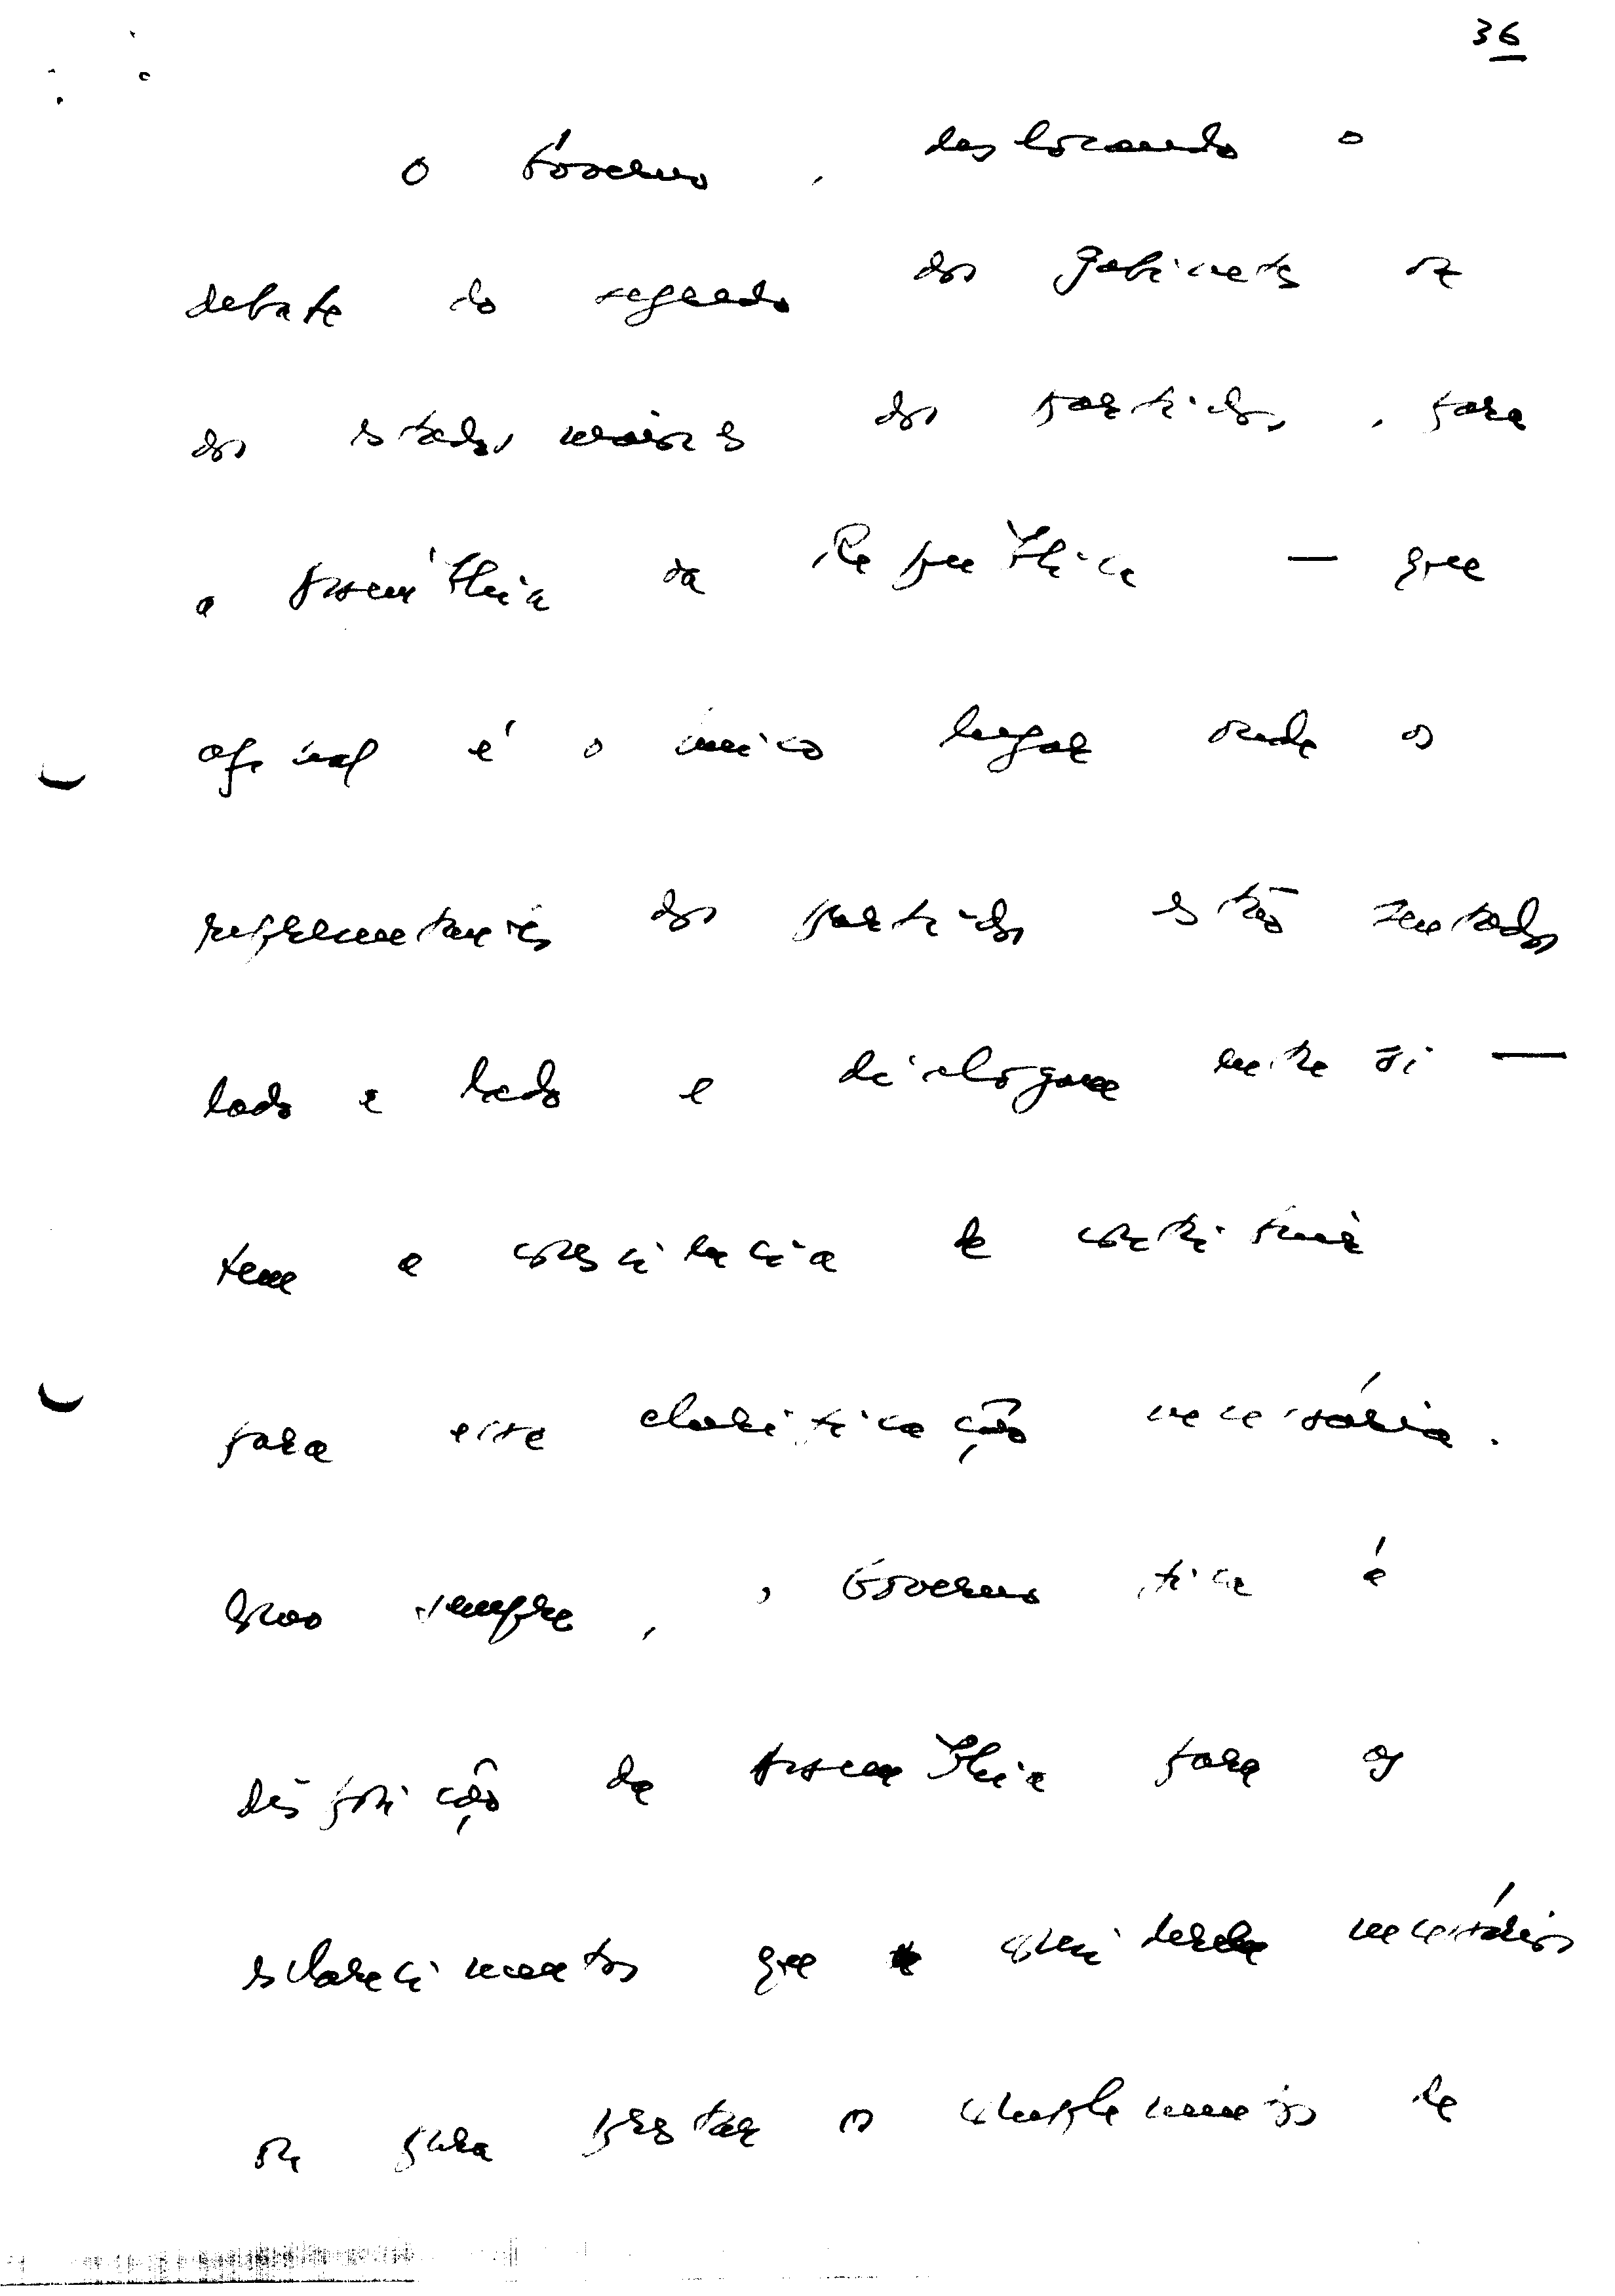 36
O Governo, deslocando o
debate do segredo dos gabinetes ou
dos estados maiores dos partidos, para
a Assembleia da República — que
afinal é o único lugar onde os
representantes dos partidos estão sentados
lado a lado e dialogam entre si —
tem a consciência de contribuir
para esta clarificação necessária.
Como sempre, o Governo fica à
disposição da Assembleia para os
esclarecimentos que considerar necessários
ou para prestar os complementos de